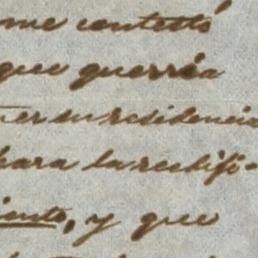 me contestó
que querréa
er su residencia
para la rectifi-
iento, y que